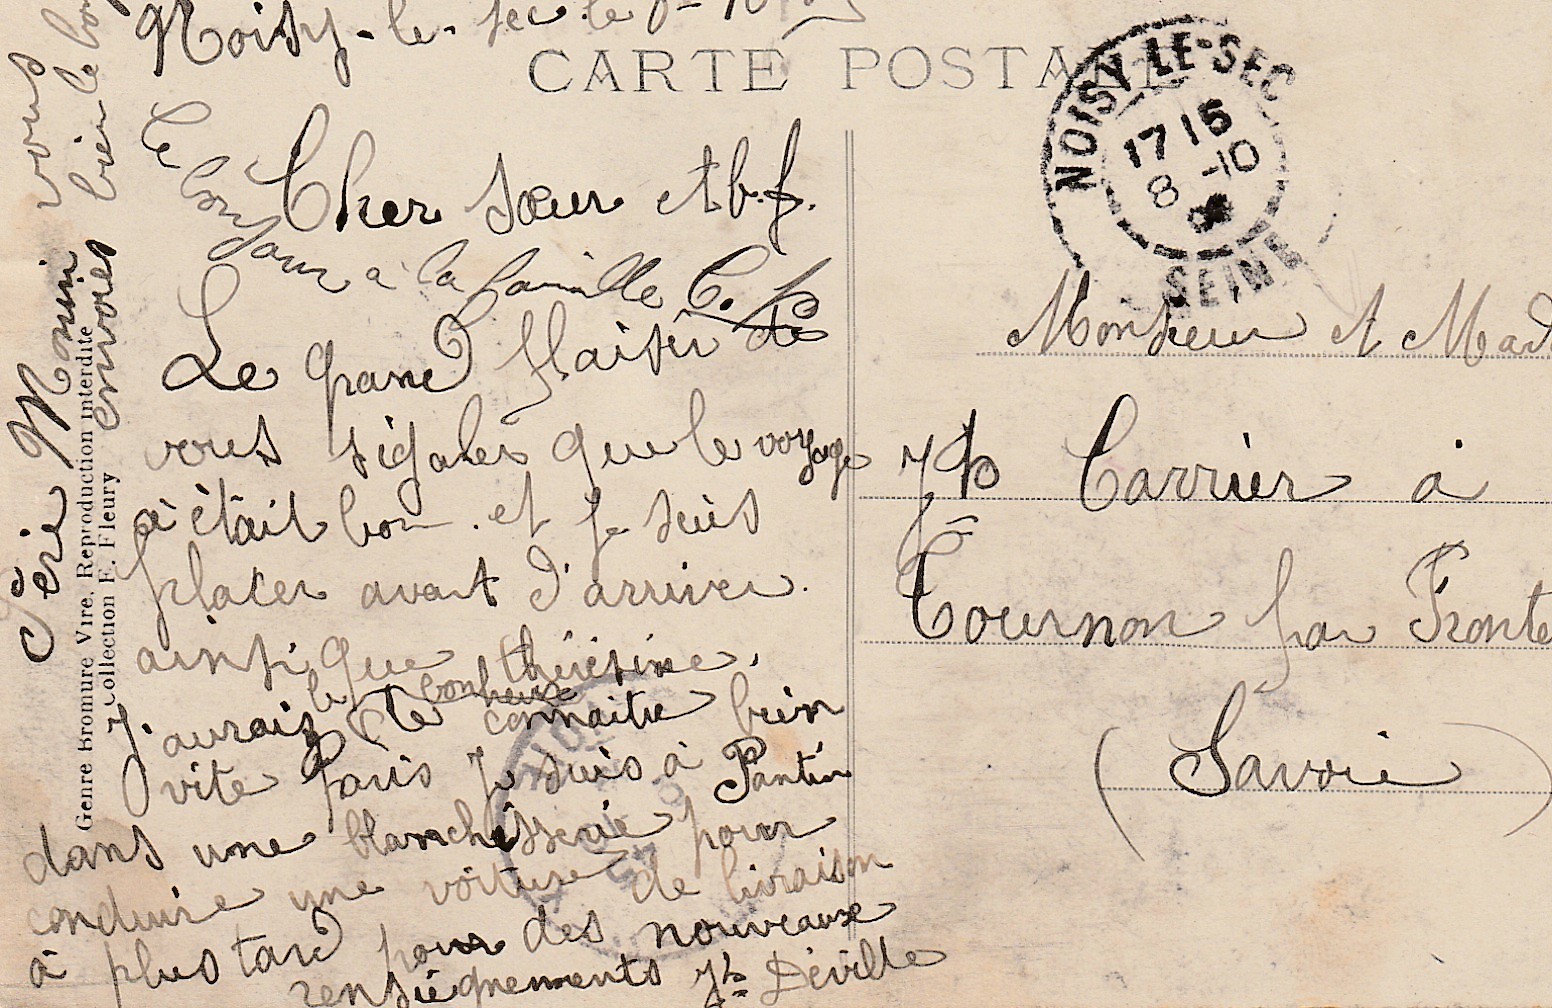 Noisy-le-sec le 8-10
CARTE POSTALE
NOISY-LE-SEC
17 15
8 -10
SEINE
Cher sœur et b.f.
Le bonjour à la famille C. P.
Le grand plaisir de
vous signaler que le voyage
à était bon. et je suis
placer avant d'arriver.
ainsi que thérésine.
J'aurais le bonheur
de connaitre bien
vite Paris Je suis à Pantin
dans une blanchisserie pour
conduire une voiture de livraison
à plus tard pour des nouveaux
renseignements Jh Déville
vous
bien le bon
envoies
Monsieur et Mad
Jh Carrier à
Tournon par Fronte
(Savoie)
Genre Bromure Vire. Reproduction interdite
Collection F. Fleury